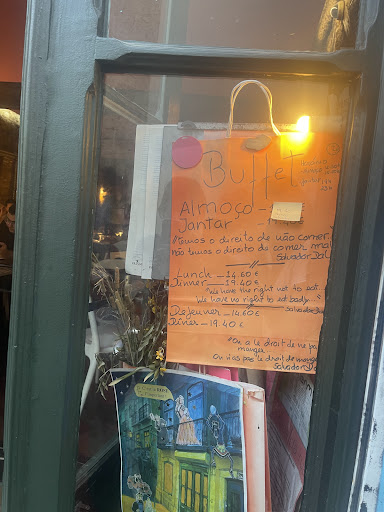 Buffet
Almoço -
Jantar -
"temos o direito de não comer.
não temos o direito de comer mal"
Salvador Dal
Lunch - 14.60 €
Dinner - 19.40 €
"We have the right not to eat.
We have no right to eat body..."
Salvador
Dejeuner - 14.60 €
Diner - 19.40 €
"On a le droit de ne pa
manger.
On n'as pas le droit de mange
Salvador Da